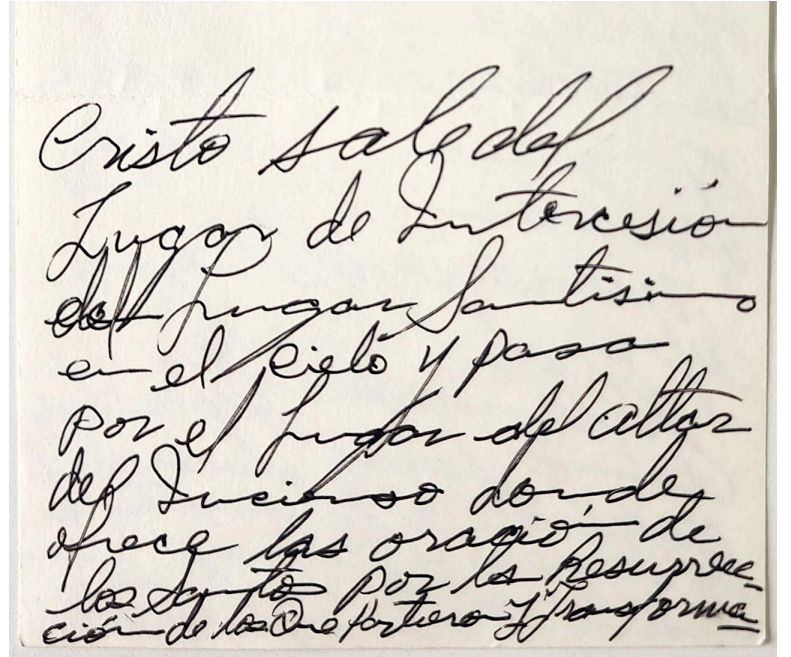 Cristo sale del
Lugar de Intercesión
del Lugar Santisimo
en el Cielo y pasa
por el Lugar del altar
del Incienso donde
ofrece las oración de
los Santos por la Resurrec_
ción de los Que Partieron y Transforma_